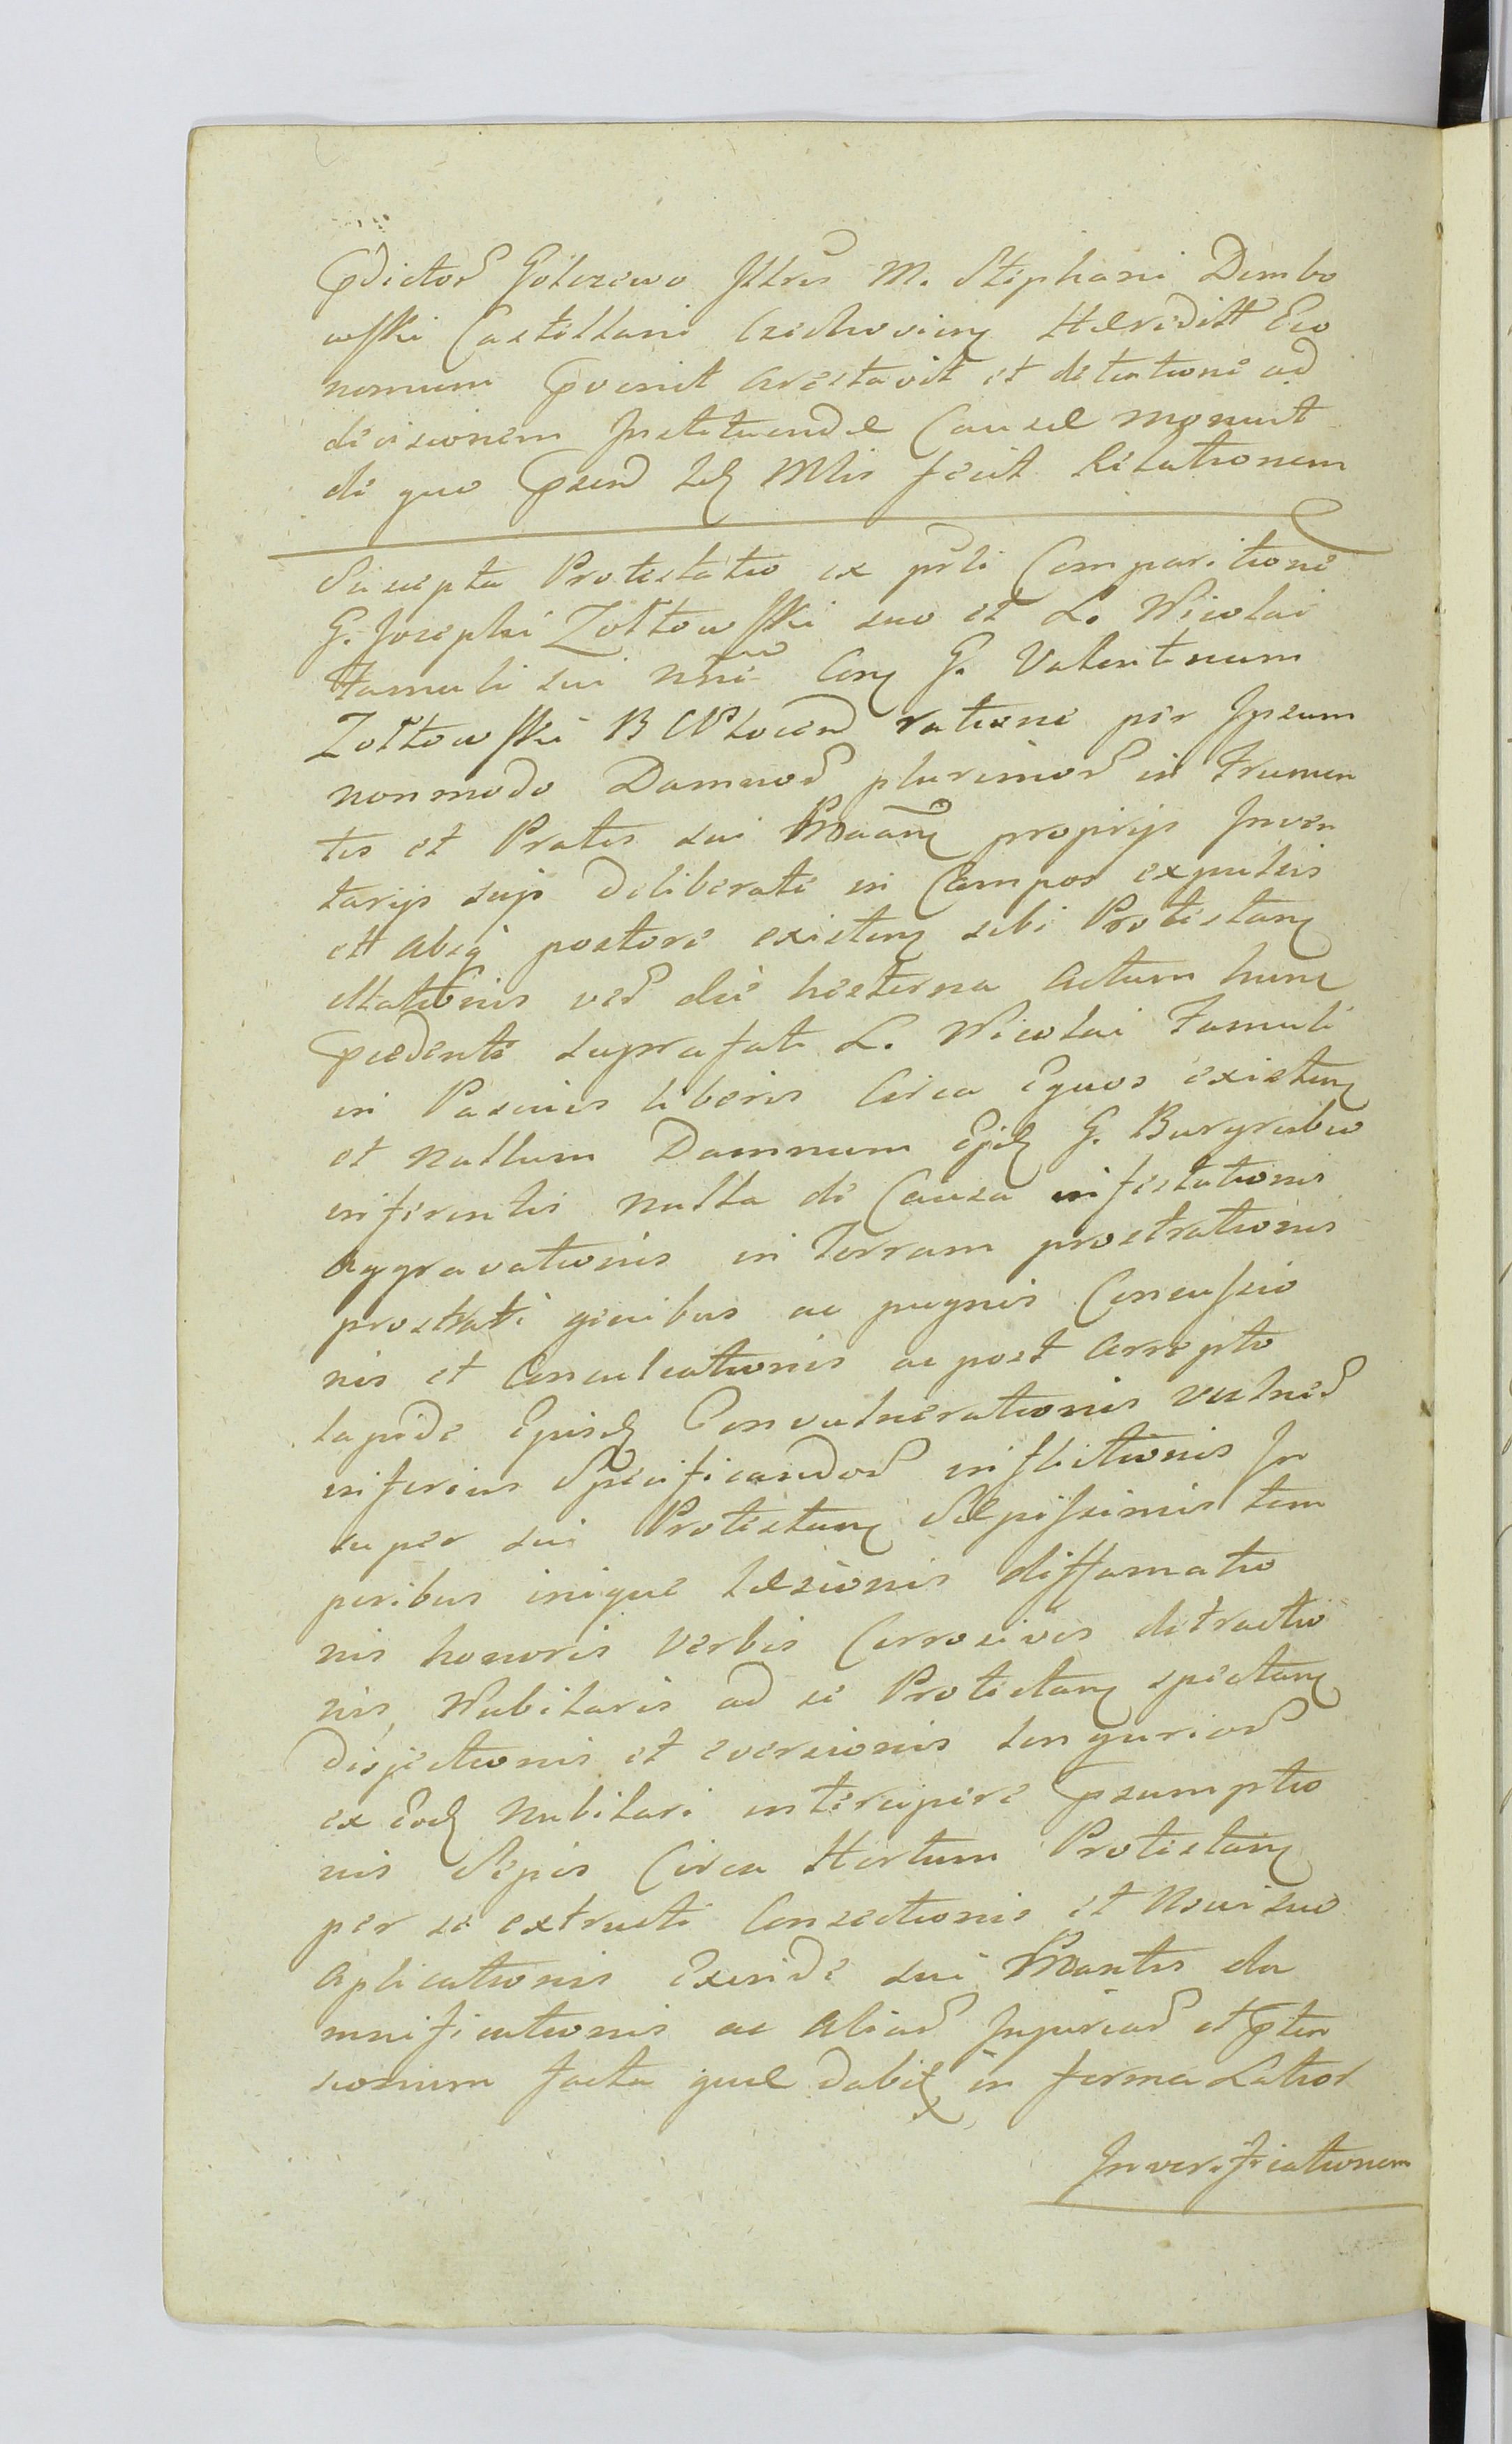 Pdictor Golczewo Illris M. Stephani Dembo
wski Castellani Czechovien Hereditt Eco
nomum Pvenit arestavit et detentione ad
decisionem Instituendæ Causæ monuit
de quo Psend Ldz Mlis fecit Relationem
Suscepta Protestatio ex psli Comparitione
G. Josephi Zołtowski suo et L. Nicolai
Famuli sui nnie Con G. Valentinum
Zołtowski B Plocen ratione per Ipsum
nonmodo Damnor plurimor in Frumen
tis et Pratis sui Maan proprijs Inven
tarijs sujs deliberate in Campos expulsis
ett absq pastore existen sibi Protestan
illationis ver die hesterna Actum hunc
Pcedente suprafati L. Nicolai Famuli
in Pascuis liberis Circa Equos existen
et nullum Damnum Ejd G. Burgrabio
inferentis nulla de Causa infestationis
aggravationis in Terram prostrationis
prostrati genibus ac pugnis Concussio
nis et Conculcationis ac post arrepto
lapide Epusd Convulnerationis vulner
inferius Specificandor inflictionis In
super sui Protestan Sæpissimis tem
poribus inique læsionis diffamatio
nis honoris verbis Corrosivis detractio
nis, Nubilaris ad se Protestan spectan
disjectionis et eversionis tengurior
ex Eod nubilari intercipere Psumptio
nis Sepis Circa Hortum Protestan
per se extructi Consectionis et Usui suo
aplicationis Exinde sui Mantis da
mnificationis ac aliar Injuriar et Pten
sionum facta quæ dabit in forma Latior
Inverificationem